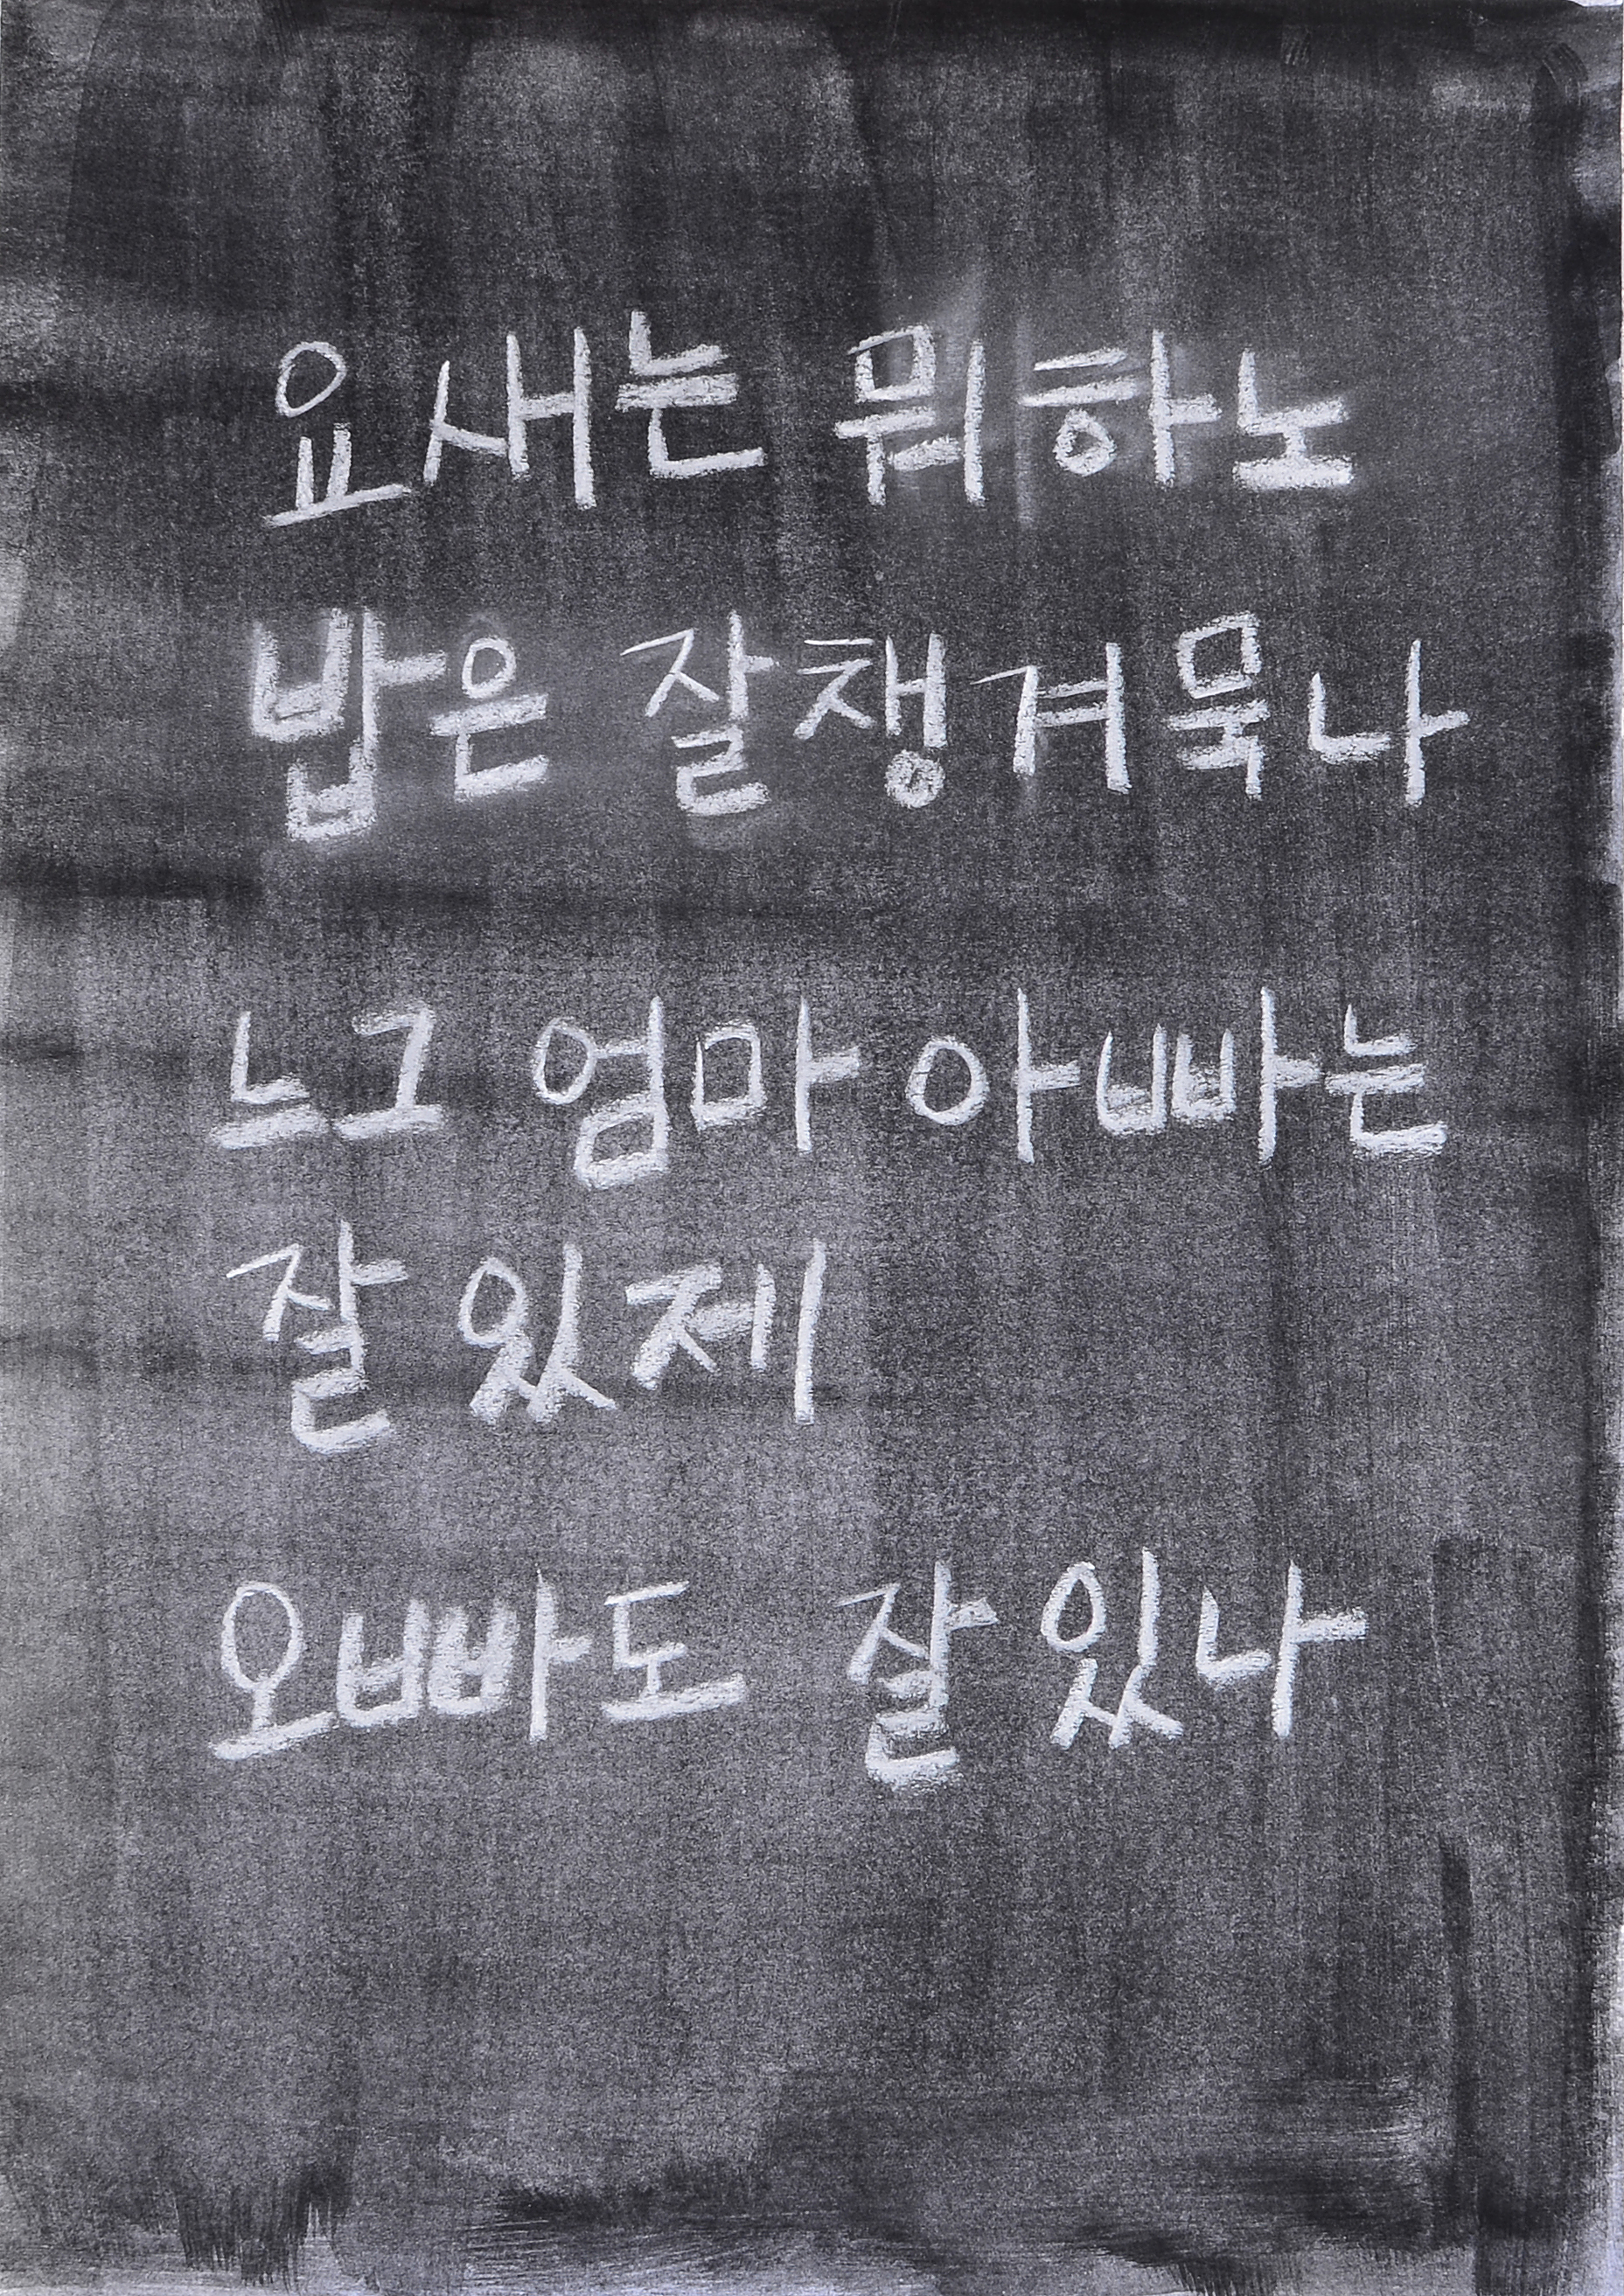 요새는 뭐하노
밥은 잘 챙겨묵나
느그 엄마 아빠는
잘 있제
오빠도 잘 있나